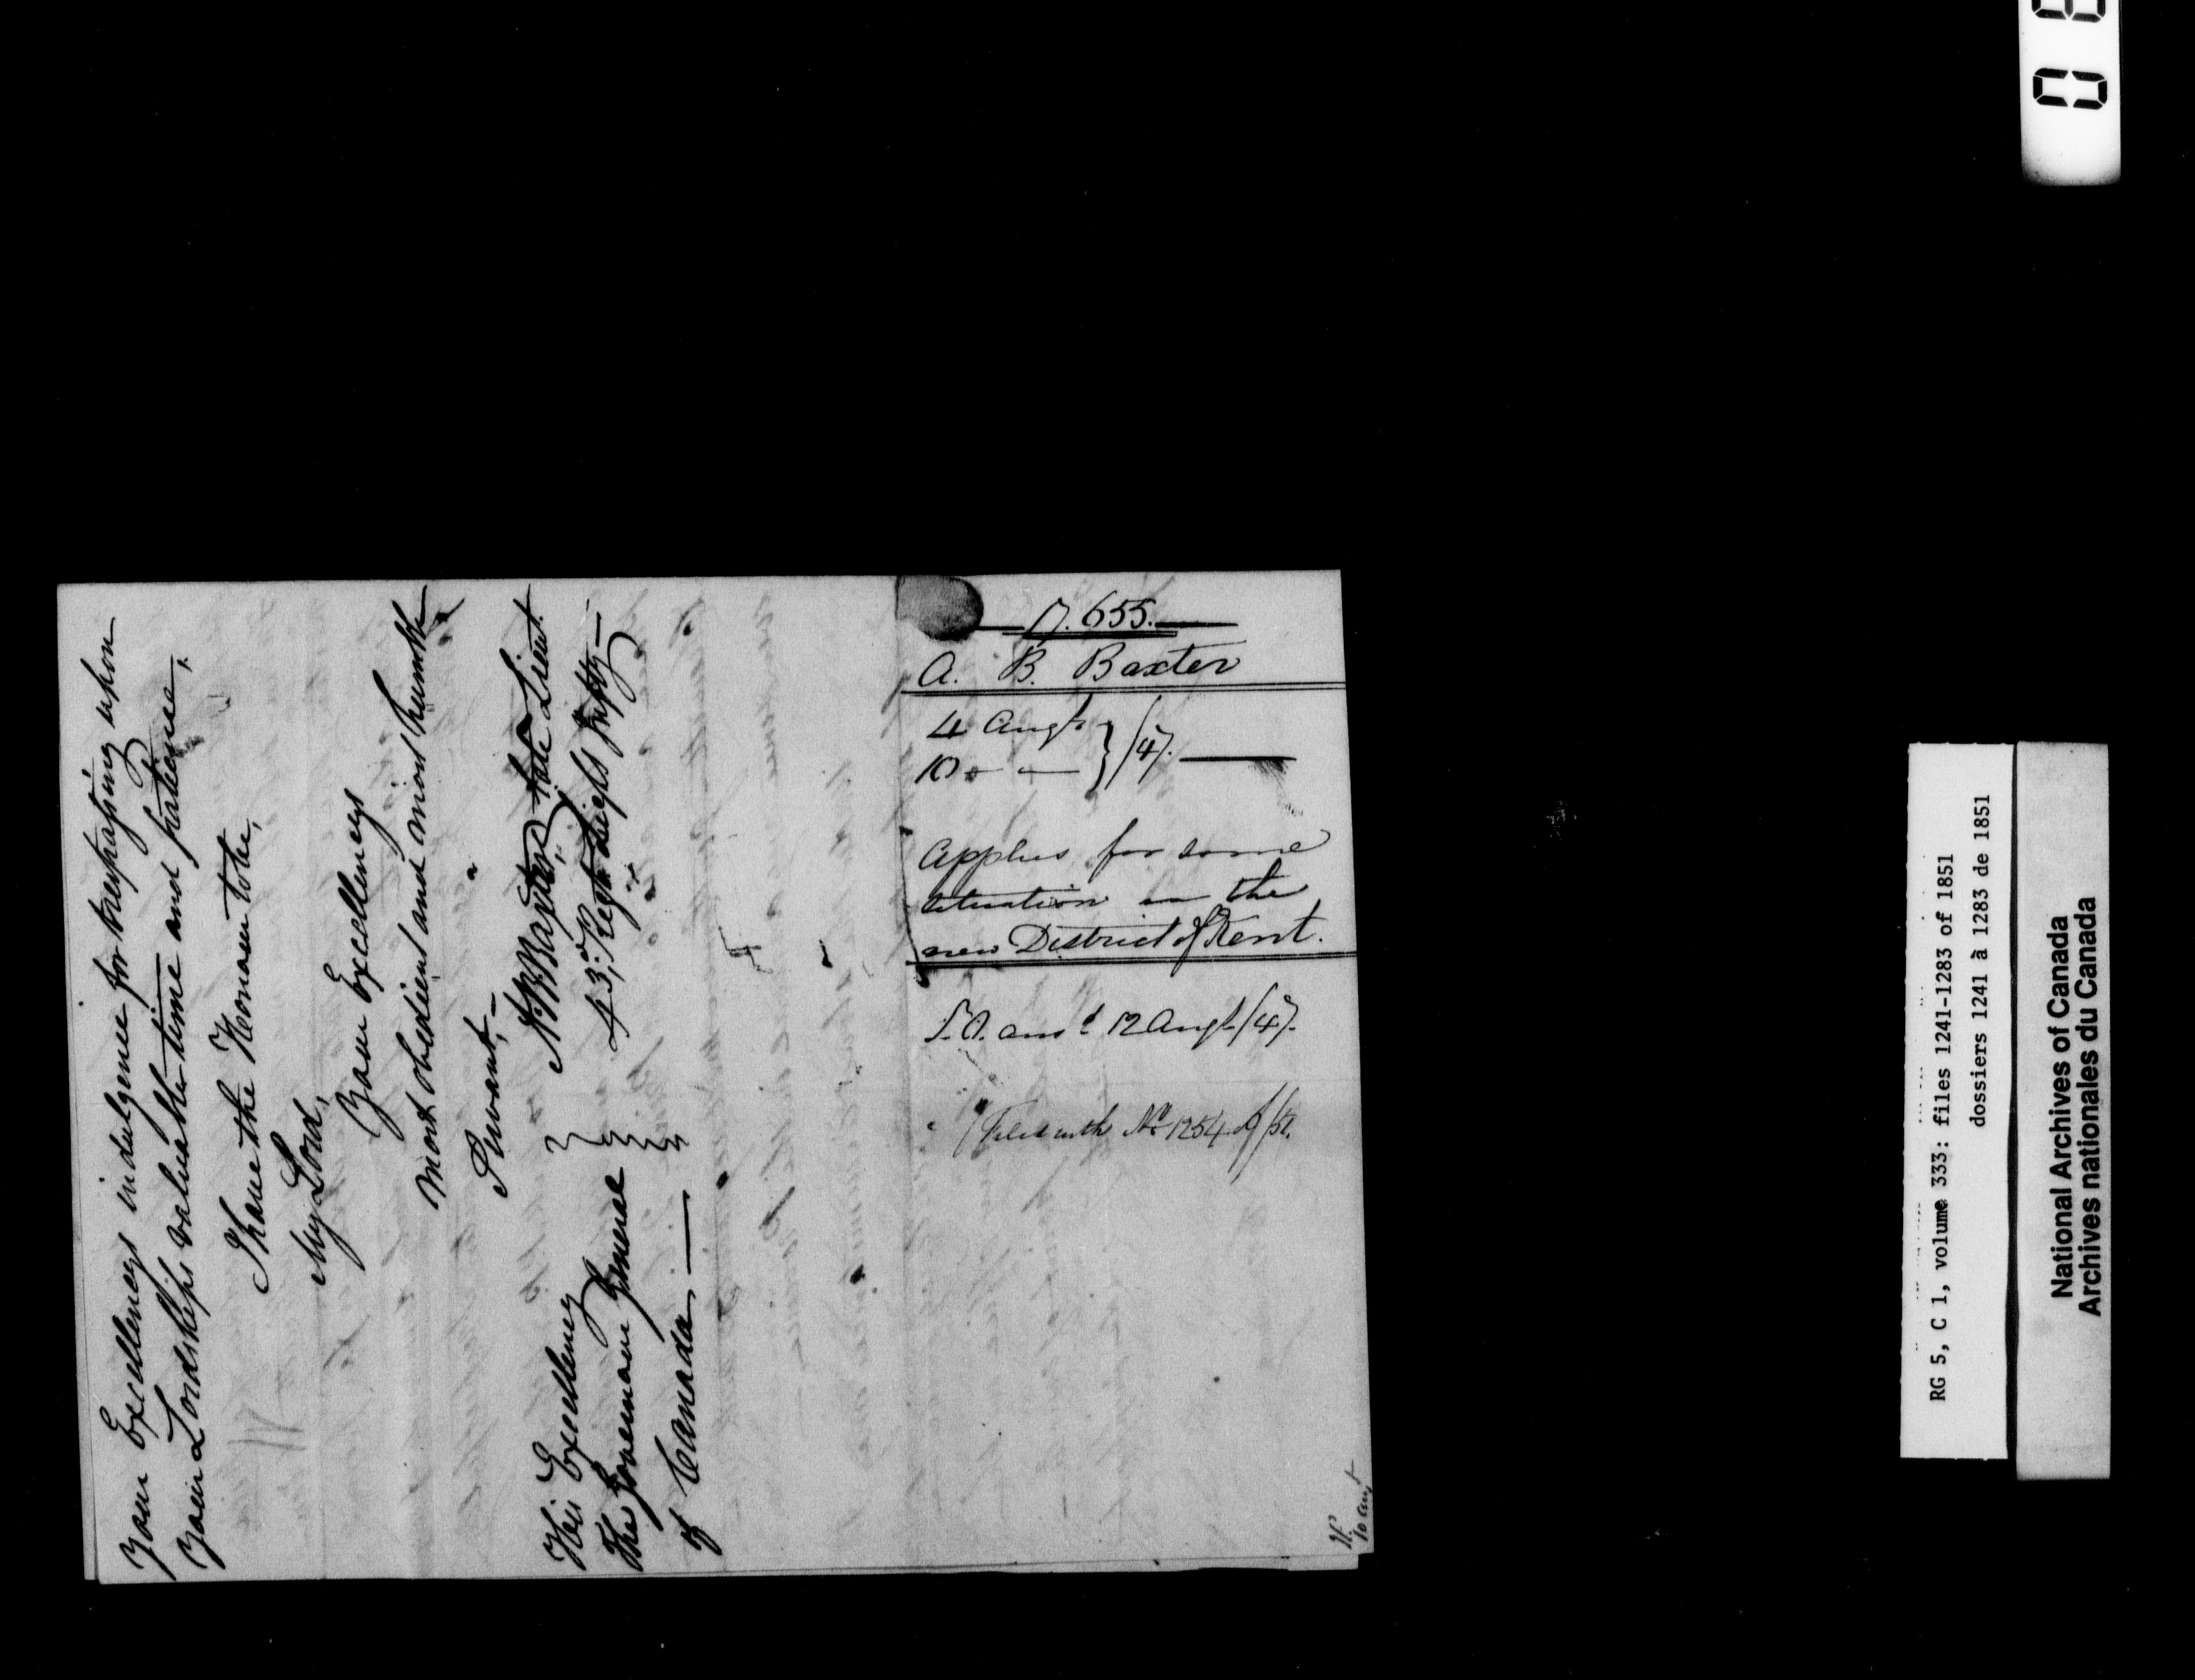 Your Excellencys indulgence for trespassing upon
Your Lordships valuable time and patience,
I have the Honour to be,
My Lord,
Your Excellencys
Most obedient and most humble
Servant,
A B Baxter, late Lieut.
43d Regt
His Excellency
The Governour General
of Canada
655.
A. B. Baxter
4 Augt
10 " — } /47.
Applies for some
situation in the
new District of Kent.
ansd 12 Augt /47.
(Filed with No 1254 of /51.
10 Augt
RG 5, C 1, volume 333: files 1241-1283 of 1851
dossiers 1241 à 1283 de 1851
National Archives of Canada
Archives nationales du Canada